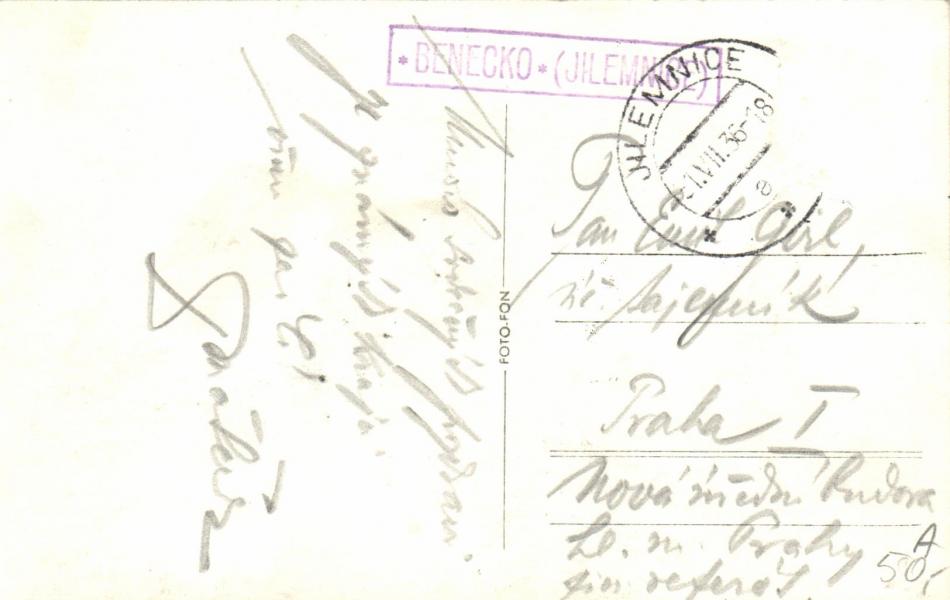 * BENECKO * (JILEMNICE)
JILEMNICE
1.VII.36-18
Mnoho srdečných pozdrav
ze známých krajů
všem
FOTO-FON
Pan Emil Görl,
tajemník
Praha I
Nová úřední budova
hl. m. Prahy
fin. referát
A
50,-